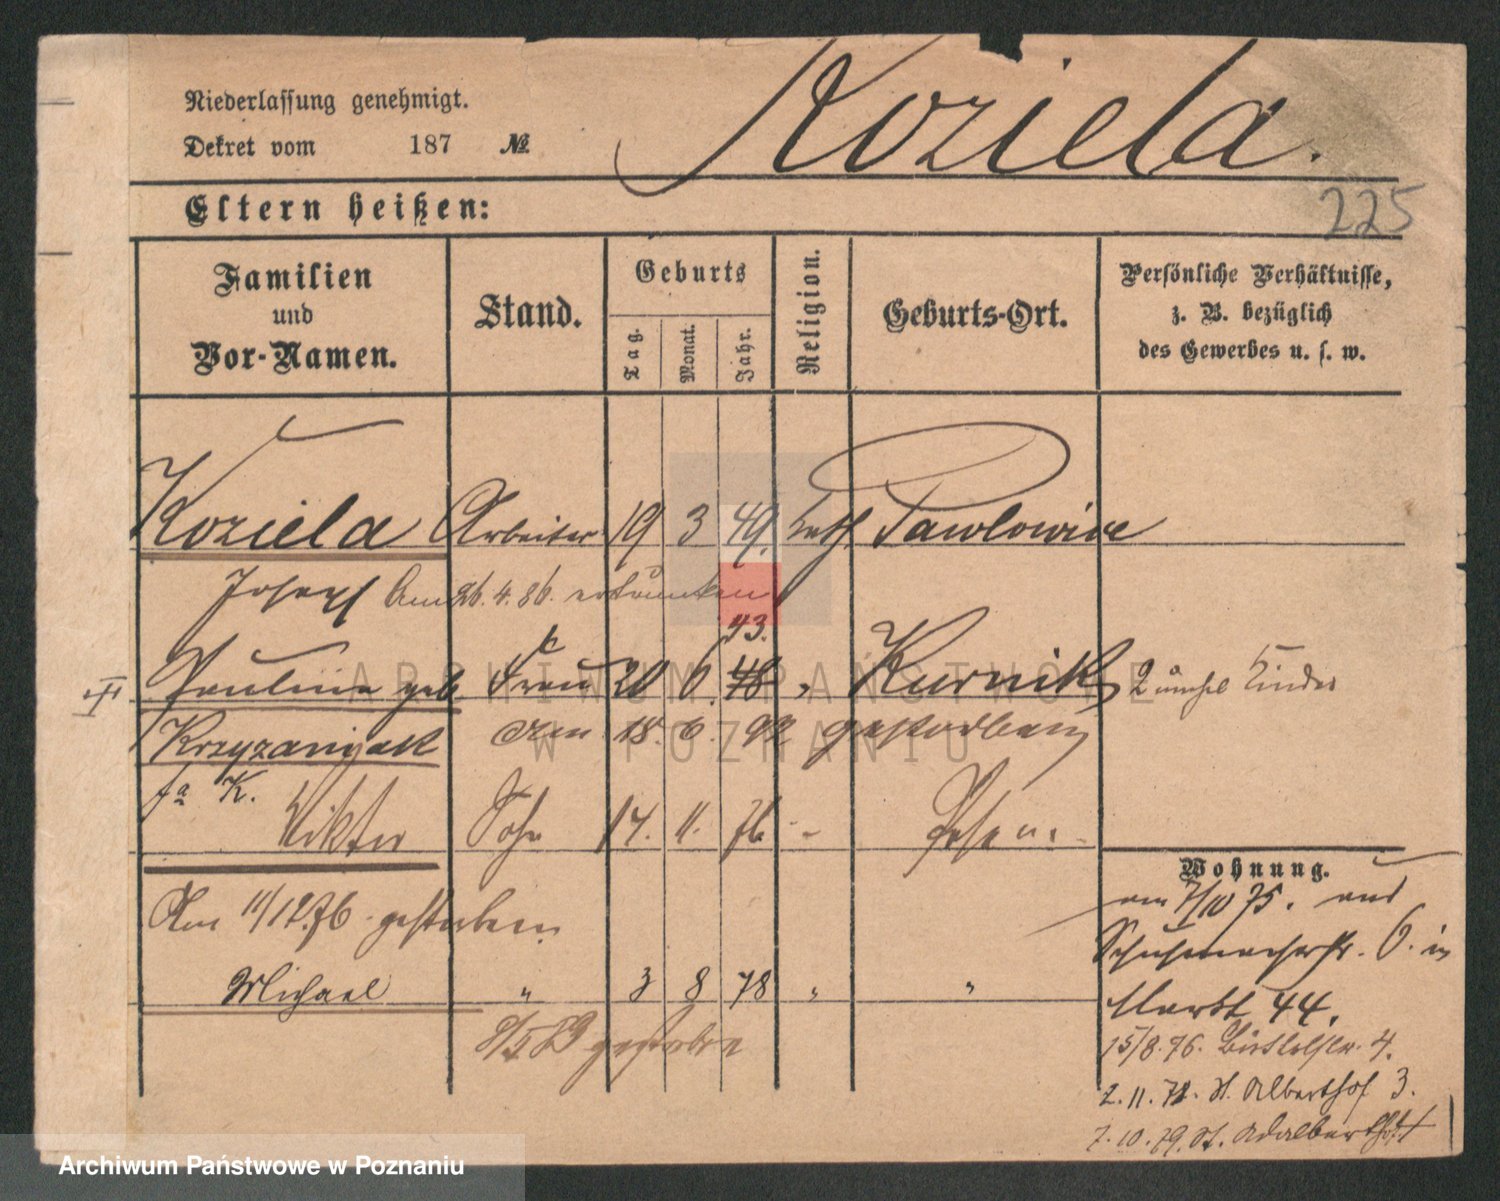 Niederlassung genehmigt.
Dekret vom 187 №
Koziela.
225
Eltern heißen:
Familien und Vor-Namen.
Stand.
Geburts
Tag.
Monat.
Jahr.
Religion.
Geburts-Ort.
Persönliche Verhältnisse, z. B. bezüglich des Gewerbes u. s. w.
Koziela Arbeiter 19 3 49. kath. Pawlowice
Joseph Am 26.4.86. ertrunken
43.
Pauline geb. Frau 20 6. 48 " Kurnik 2 Kinder
Krzyzaniak Am 18. 6. 92 gestorben
K. Viktor Sohn 14. 11. 76 - Posen.
Am 11/12.76 gestorben
Michael " 3 8 78 " "
gestorben
Wohnung.
am 7/10 75. aus
Schuhmacherstr. 6. in
Markt 44.
15/8.76. Büttelstr. 4.
2.11.78. St. Alberthof 3.
7.10.79. St. Adalbert
ARCHIWUM PAŃSTWOWE
W POZNANIU
Archiwum Państwowe w Poznaniu